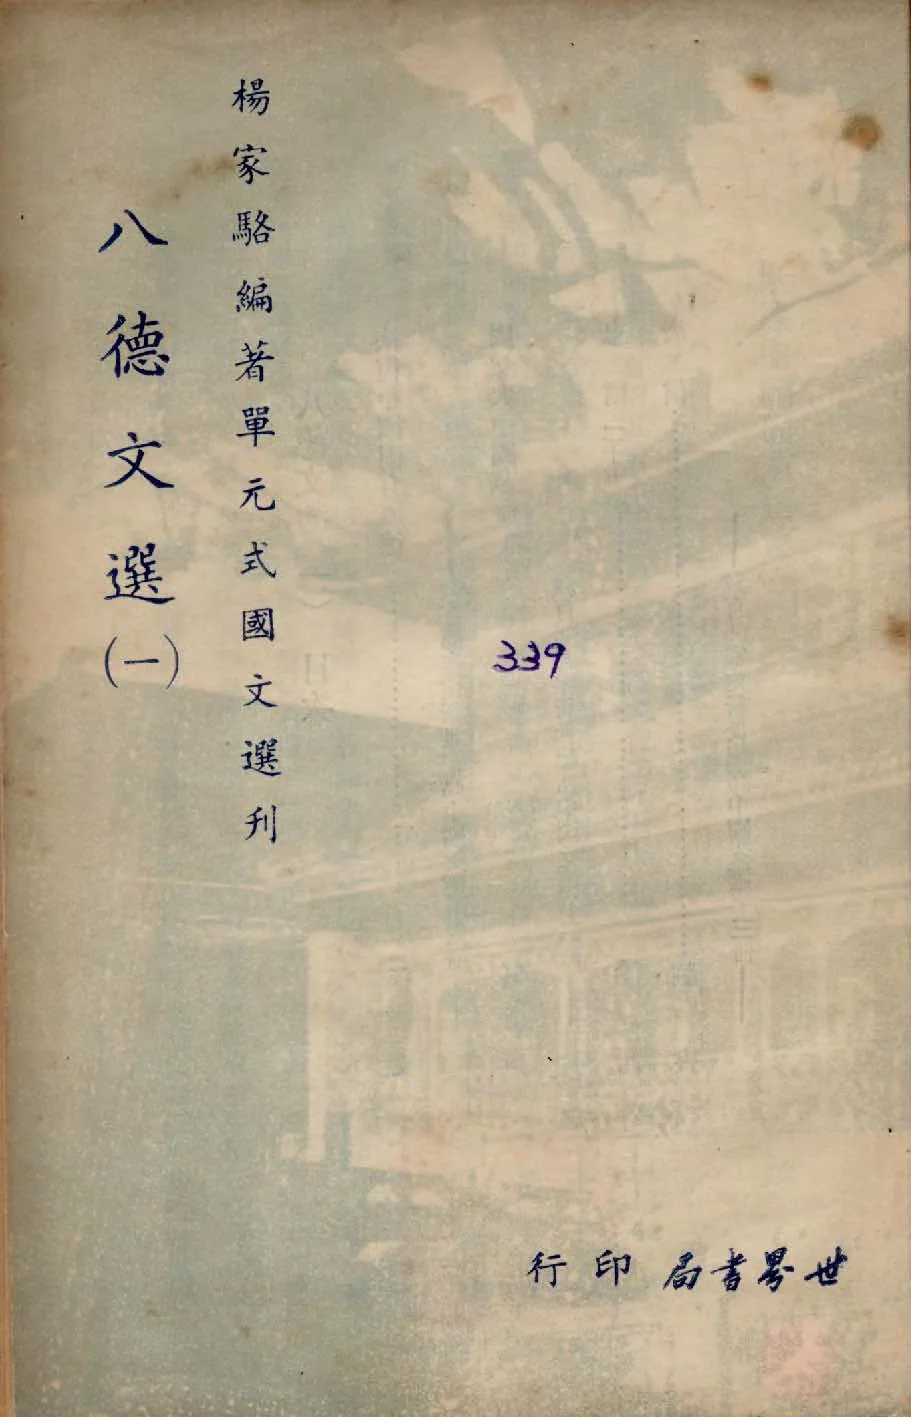 楊家駱編著單元式國文選刊
八德文選(一)
339
世界書局印行